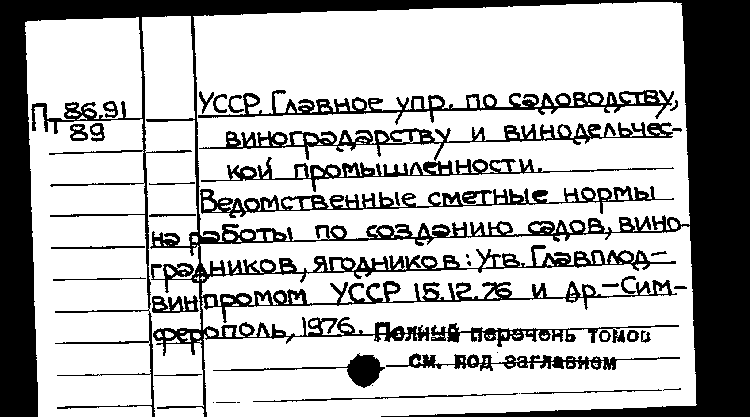 Пт 86.91
89
УССР. Главное упр. по садоводству,
виноградарству и винодельчес-
кой промышленности.
Ведомственные сметные нормы
на работы по созданию садов, вино-
градников, ягодников: Утв. Главплод-
винпромом УССР 15.12.76 и др.-Сим-
ферополь, 1976.
Полный перечень томов
см. под заглавием